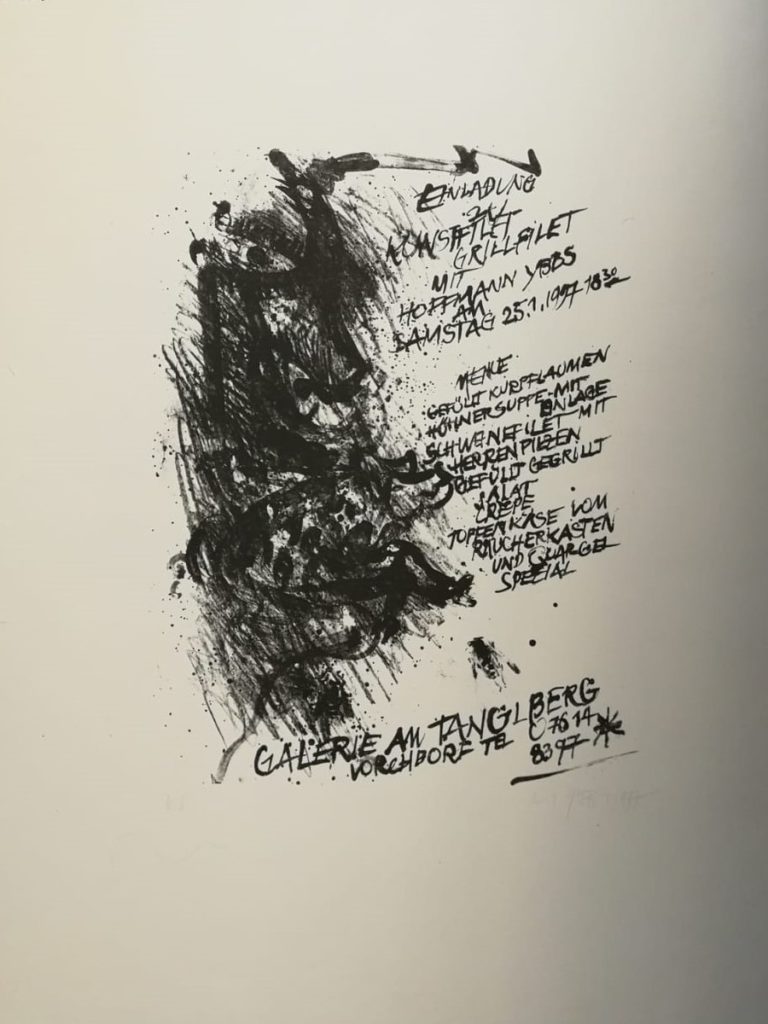 EINLADUNG
ZUL
KUNSTFILET
GRILLFILET
MIT
HOFFMANN YBBS
AM
SAMSTAG 25.1.1997 18 30
MENUE
GEFÜLLT KURPFLAUMEN
HÜHNERSUPPE MIT
EINLAGE
SCHWEINEFILET MIT
HERRENPILZEN
GEFÜLLT GEGRILLT
SALAT
CREPE
TOPFENKÄSE VOM
RÄUCHERKASTEN
UND QUARGEL
SPEZIAL
GALERIE AM TANGLBERG
VORCHDORF TEL 07614
8397